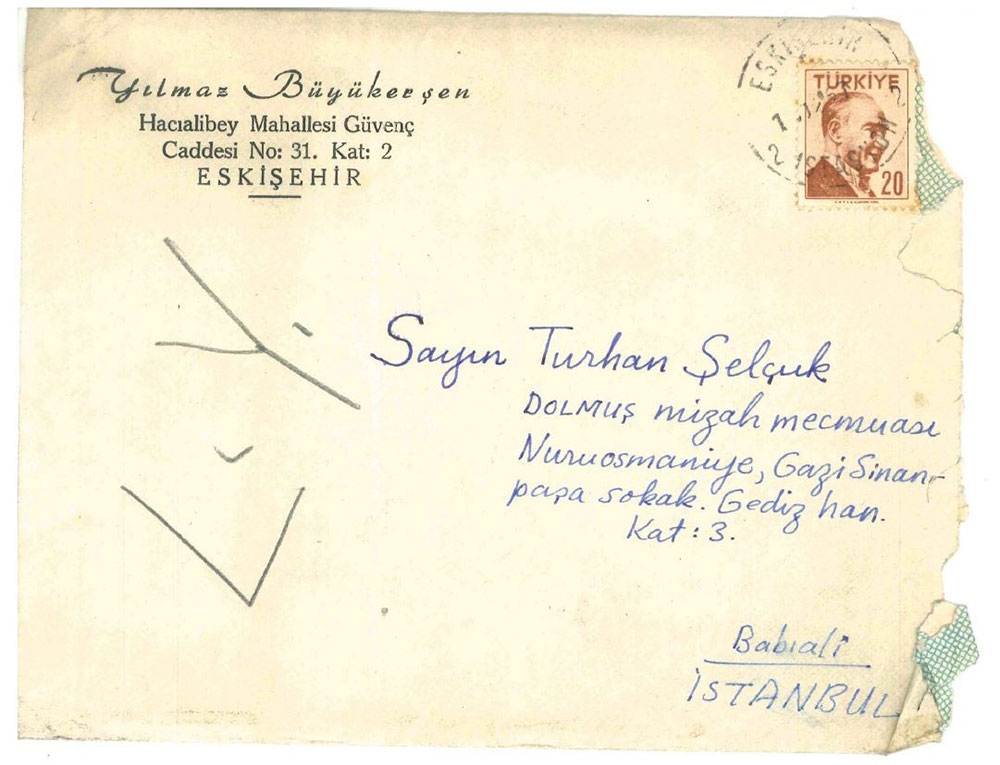 Yılmaz Büyükerşen
Hacıalibey Mahallesi Güvenç
Caddesi No: 31. Kat: 2
ESKİŞEHİR
ESKİŞEHİR
TÜRKİYE
20
İSTASYON
Sayın Turhan Şelçuk
DOLMUŞ mizah mecmuası
Nuruosmaniye, Gazi Sinan-
paşa sokak. Gediz han.
Kat: 3.
Babıali
İSTANBUL